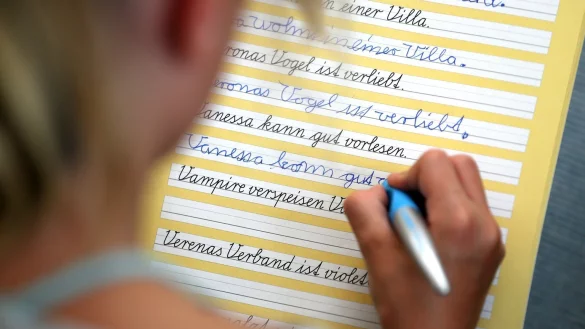 einer Villa.
wohnt in einer Villa.
ronas Vogel ist verliebt.
ronas Vogel ist verliebt.
Vanessa kann gut vorlesen.
Vanessa kann gut
Vampire verspeisen
Verenas Verband ist violett